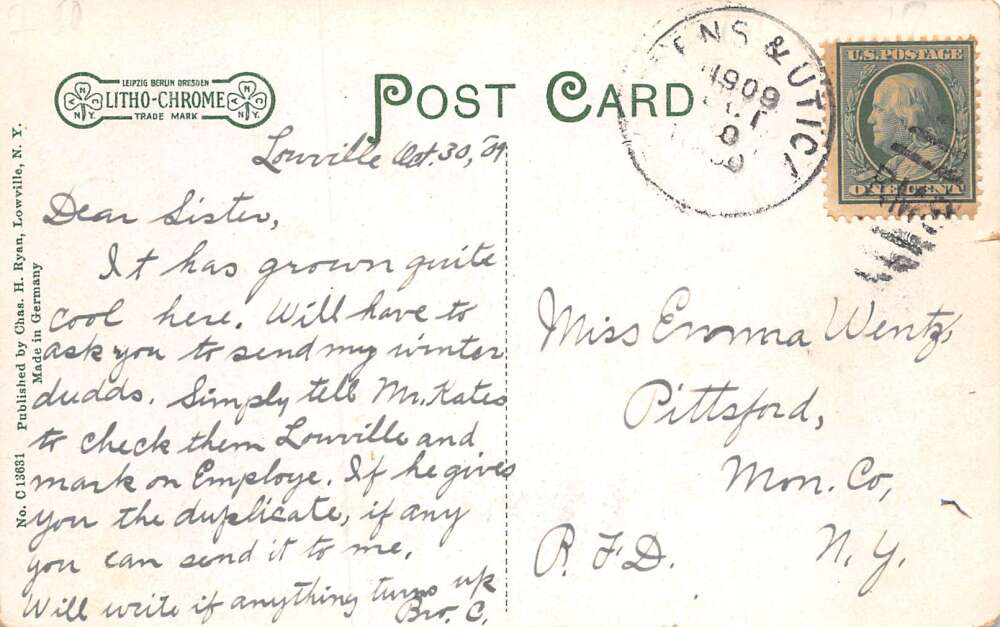 LEIPZIG BERLIN DRESDEN
LITHO-CHROME
TRADE MARK
A N C
N.Y.
A N C
N.Y.
POST CARD
ENS & UTICA
1909
U.S. POSTAGE
ONE CENT
R.M.S.
No. C 13631 Published by Chas. H. Ryan, Lowville, N. Y.
Made in Germany
Lowville Oct. 30, '09
Dear Sister,
It has grown quite
cool here. Will have to
ask you to send my winter
dudds. Simply tell Mr. Kates
to check them Lowville and
mark on Employe. If he gives
you the duplicate, if any
you can send it to me.
Will write if anything turns up
Bro. C.
Miss Emma Wentz,
Pittsford,
Mon. Co,
R. F. D. N. Y.